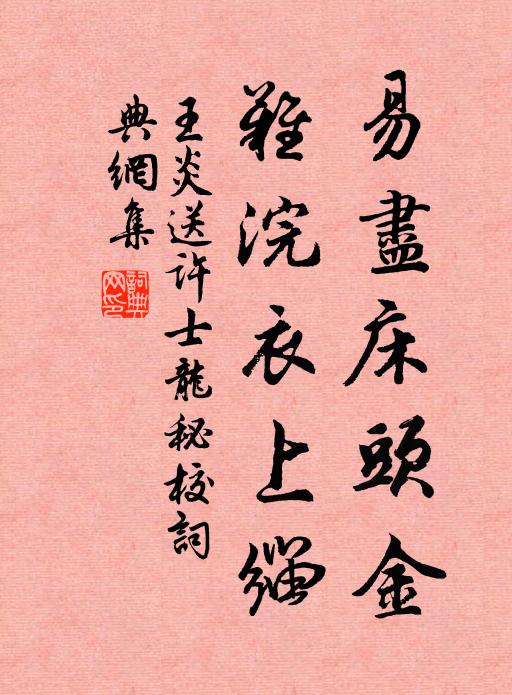 易盡床頭金
難浣衣上緇
王炎送許士龍秘校詞
典網集
詞典
网印